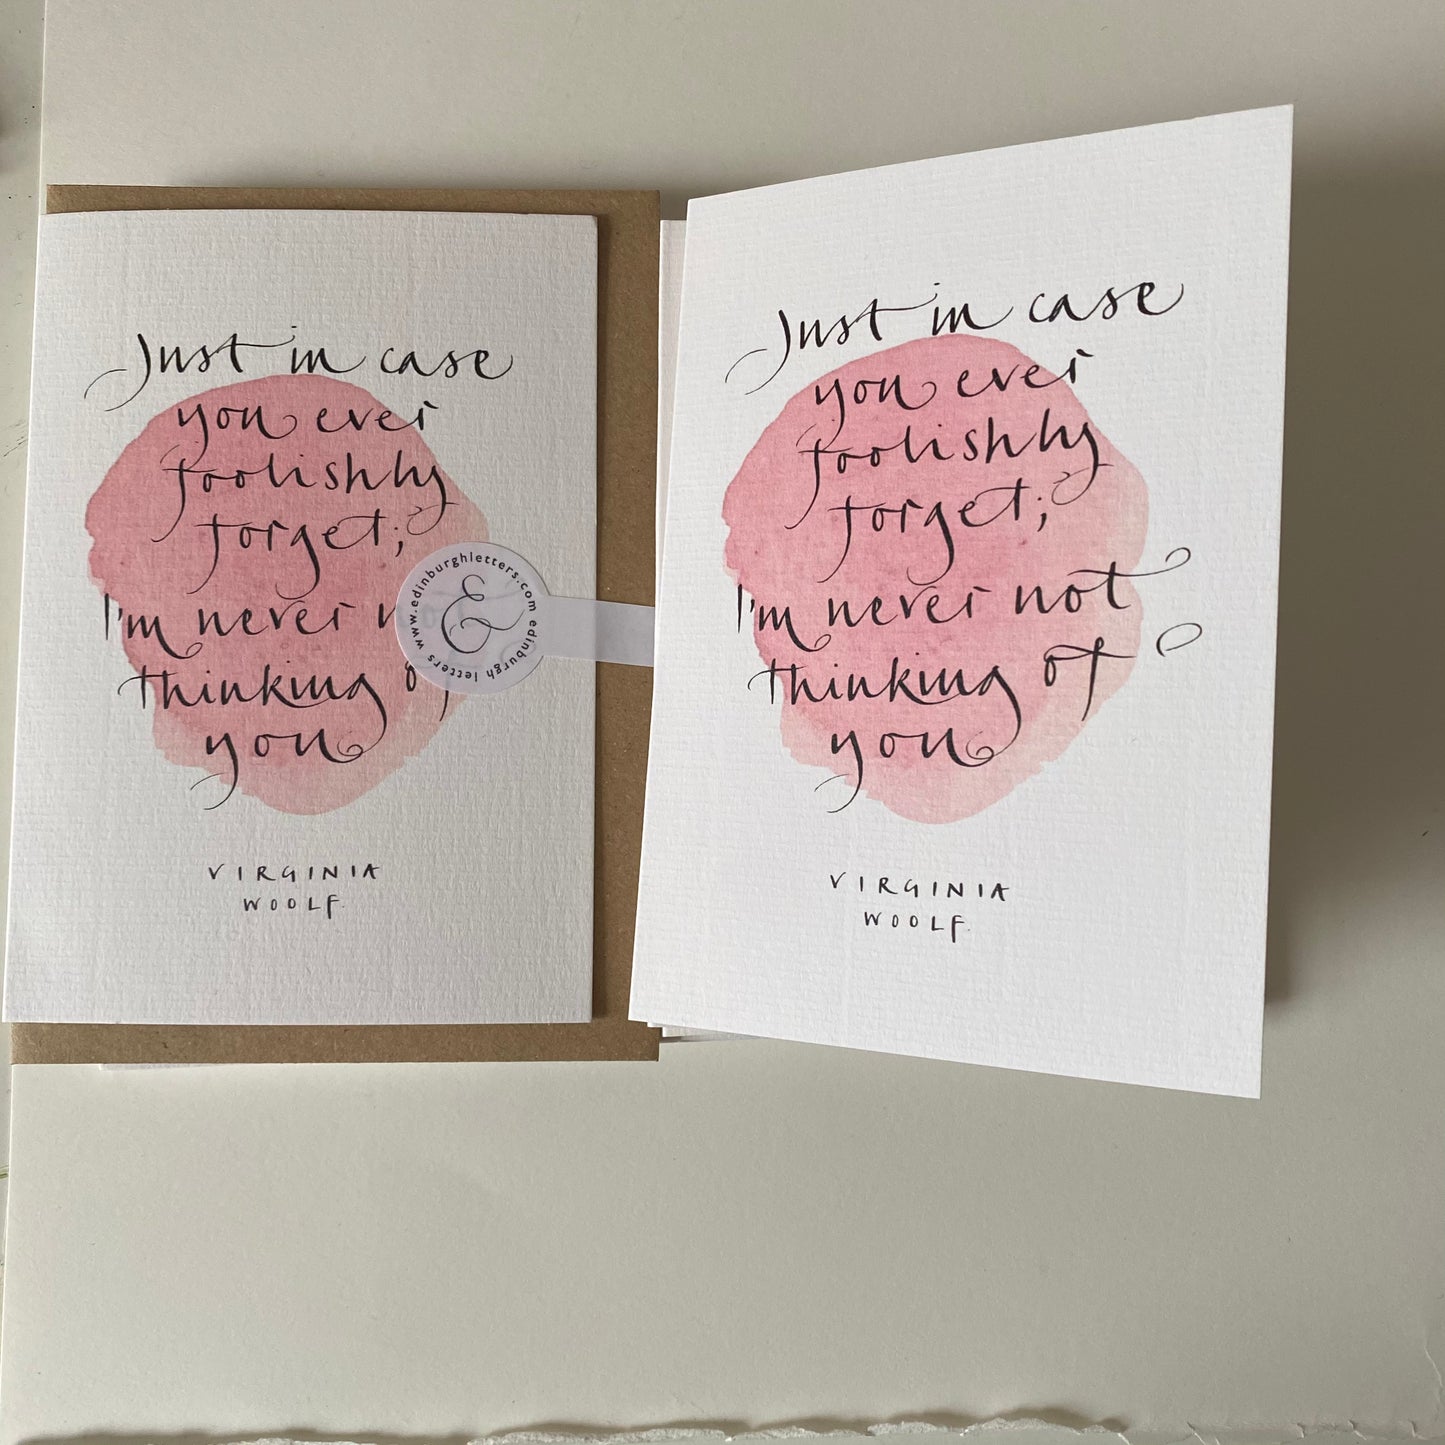 Just in case
you ever
foolishly
forget;
I'm never
thinking of
you
VIRGINIA
WOOLF.
www.edinburghletters.com edinburgh letters
E
Just in case
you ever
foolishly
forget;
I'm never not
thinking of
you
VIRGINIA
WOOLF.